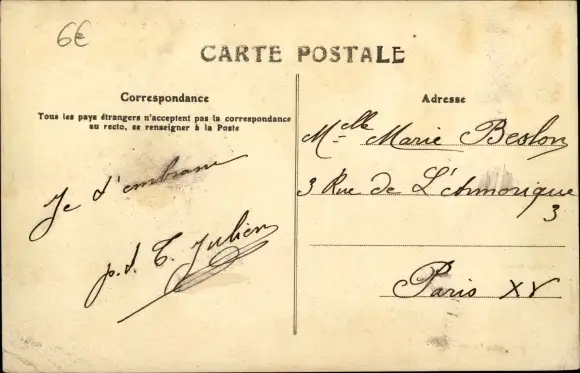 6€
CARTE POSTALE
Correspondance
Tous les pays étrangers n'acceptent pas la correspondance
au recto, se renseigner à la Poste
Je t'embrasse
p.t. T. Julien
Adresse
Melle Marie Beslon
3 Rue de L'Armorique
3
Paris XV